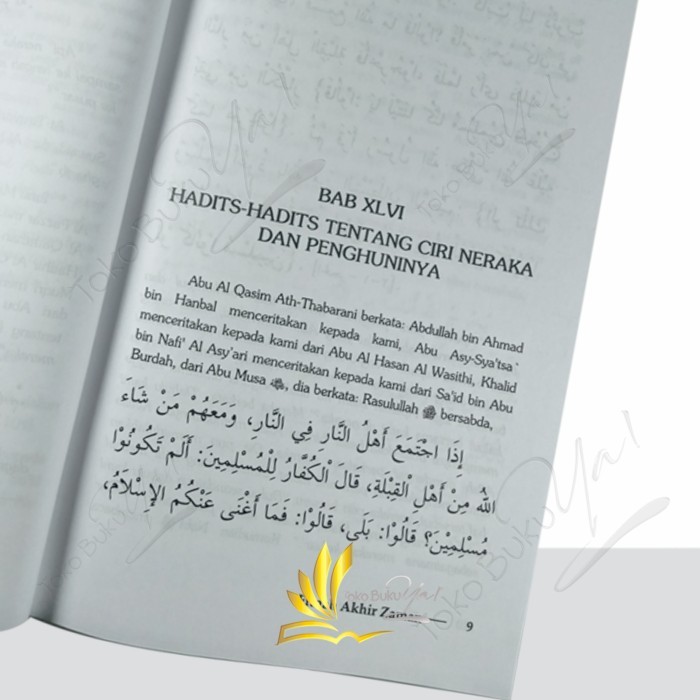 BAB XLVI
HADITS-HADITS TENTANG CIRI NERAKA
DAN PENGHUNINYA
Abu Al Qasim Ath-Thabarani berkata: Abdullah bin Ahmad
bin Hanbal menceritakan kepada kami, Abu Asy-Sya'tsa`
menceritakan kepada kami dari Abu Al Hasan Al Wasithi, Khalid
bin Nafi' Al Asy'ari menceritakan kepada kami dari Sa'id bin Abu
Burdah, dari Abu Musa ؓ, dia berkata: Rasulullah ﷺ bersabda,
إِذَا اجْتَمَعَ أَهْلُ النَّارِ فِي النَّارِ، وَمَعَهُمْ مَنْ شَاءَ
اللهُ مِنْ أَهْلِ الْقِبْلَةِ، قَالَ الْكُفَّارُ لِلْمُسْلِمِينَ: أَلَمْ تَكُونُوْا
مُسْلِمِيْنَ؟ قَالُوْا: بَلَى، قَالُوْا: فَمَا أَغْنَى عَنْكُمُ الإِسْلاَمُ،
Toko Buku Ya!
Akhir Zaman 9